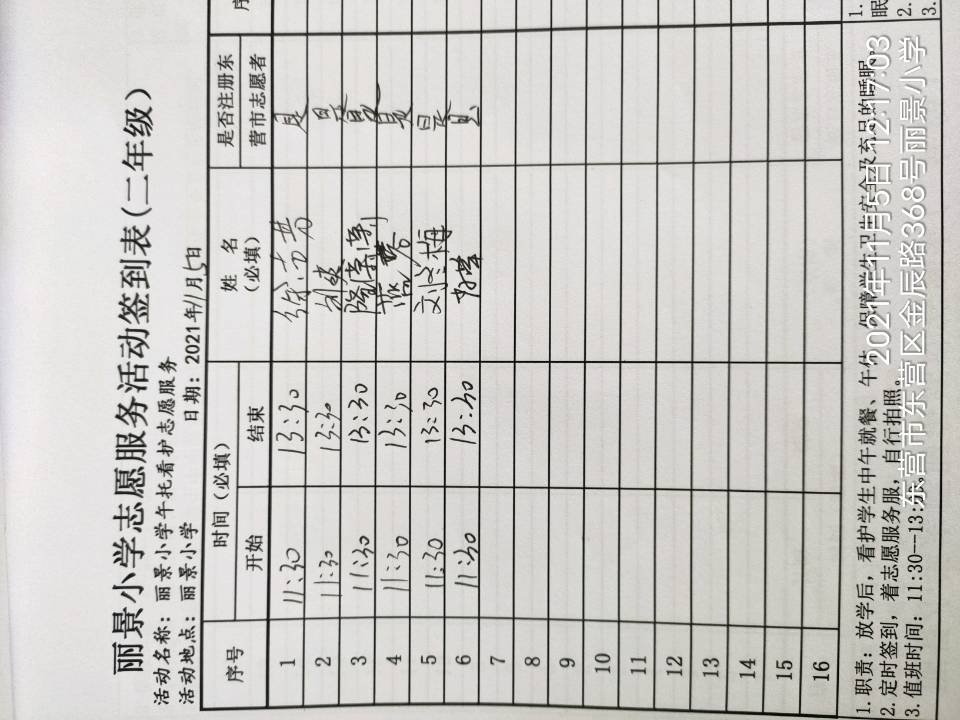 丽景小学志愿服务活动签到表(二年级)
活动名称：丽景小学午托看护志愿服务
活动地点：丽景小学 日期：2021年11月5日
序号 时间（必填） 姓 名（必填） 是否注册东营市志愿者 序
开始 结束
1 11:30 13:30 是
2 11:30 13:30 是
3 11:30 13:30 是
4 11:30 13:30 是
5 11:30 13:30 是
6 11:30 13:30 是
7
8
9
10
11
12
13
14
15
16
1.职责：放学后，看护学生中午就餐、午休，保障学生卫生安全及充足的睡眠。
2.定时签到，着志愿服务服，自行拍照。
3.值班时间：11:30--13:
1.
眠
2.
3.
2021年11月5日 12:17:03
东营市东营区金辰路368号丽景小学